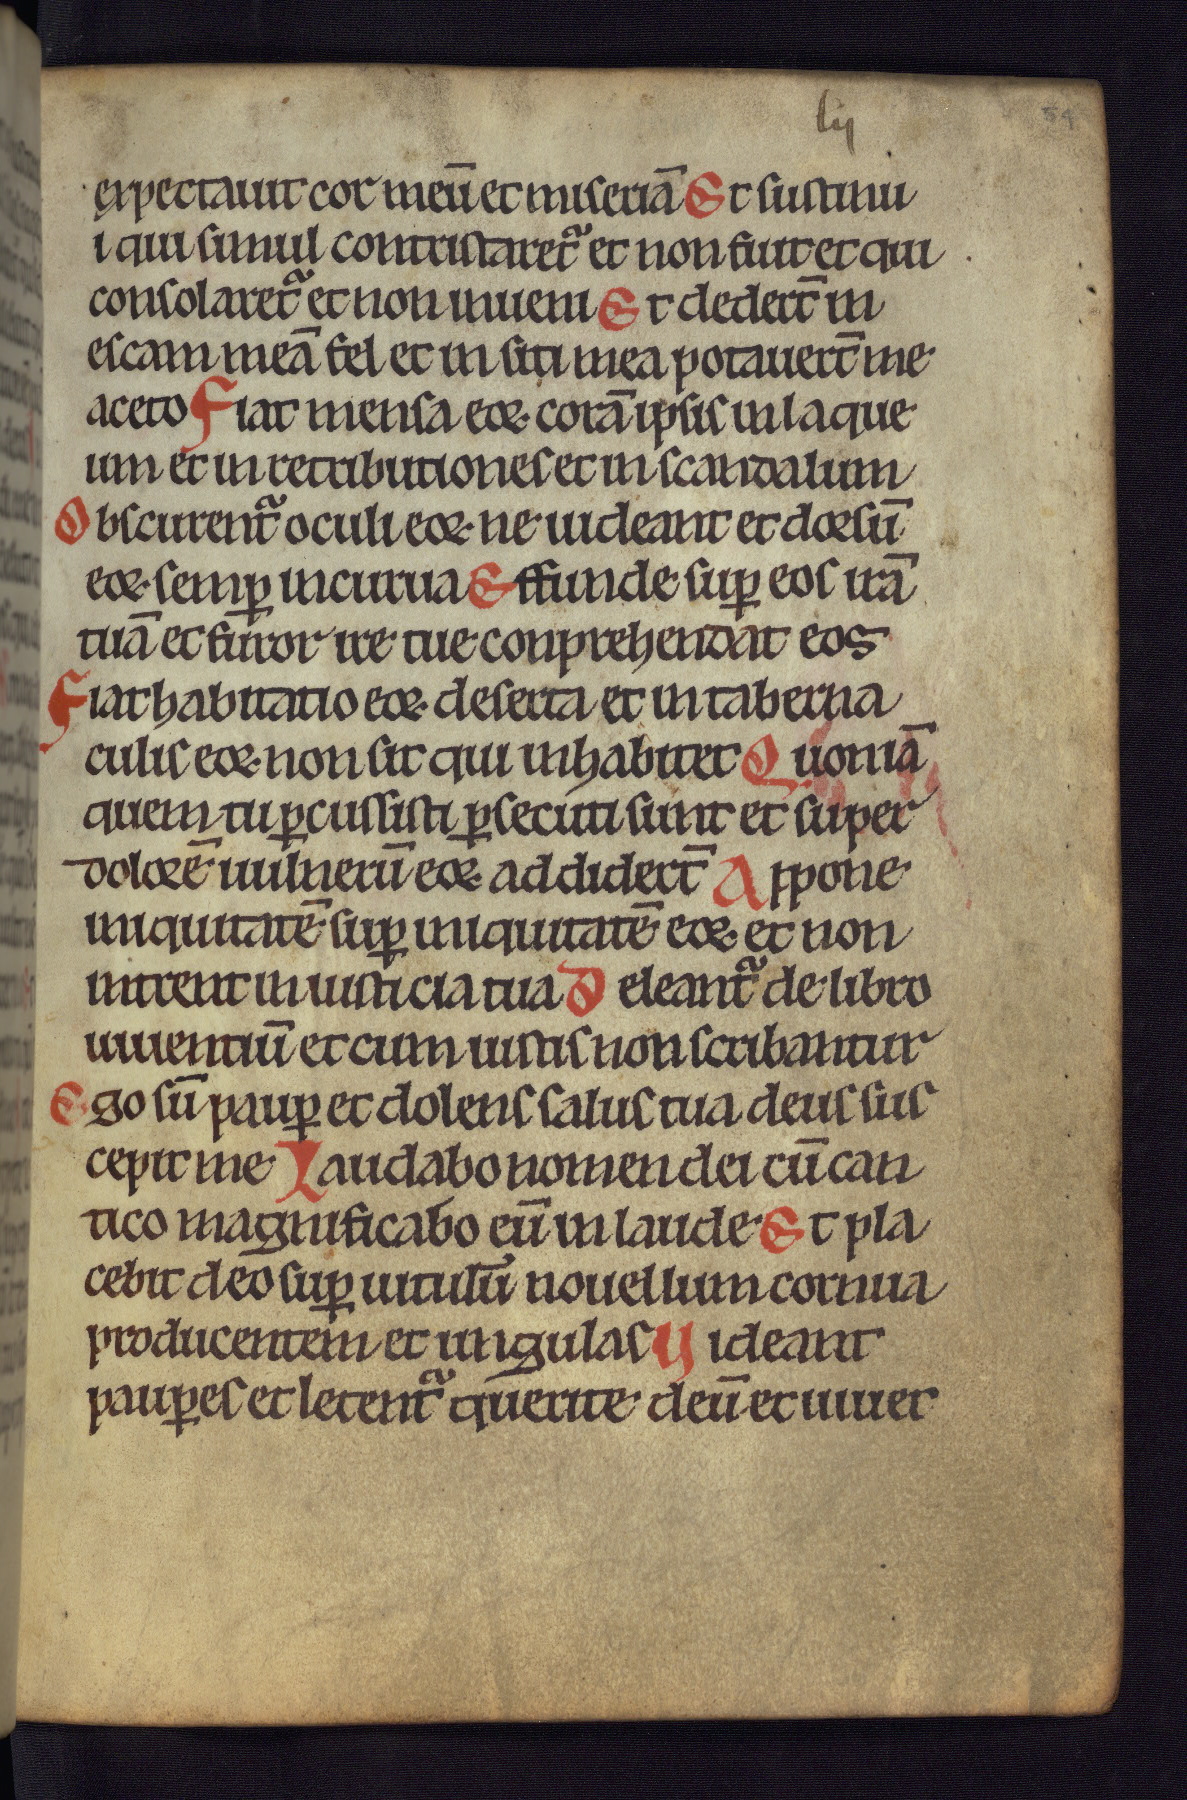 liij
54
expectauit cor meū et miseriā Et sustinu
i qui simul contristaret᷑ et non fuit et qui
consolaret᷑ et non inueni Et dedert̄ in
escam meā fel et in siti mea potauert̄ me
aceto Fiat mensa eoꝝ corā ipsis in laque
um et in retributiones et in scandalum
Obscurent᷑ oculi eoꝝ ne uideant et dorsū
eoꝝ semꝑ incurua Effunde suꝑ eos irā
tuā et furor ire tue conprehendat eos
Fiat habitatio eoꝝ deserta et in taberna
culis eoꝝ non sit qui inhabitet Quoniā
quem tu ꝑcussisti ꝑsecuti sunt et super
dolorē uulnerū eoꝝ addidert̄ Appone
iniquitatē suꝑ iniquitatē eoꝝ et non
intrent in iusticia tua Deleant᷑ de libro
uiuentiū et cum iustis non scribantur
Ego sū pauꝑ et dolens salus tua deus sus
cepit me Laudabo nomen dei cū can
tico magnificabo eū in laude Et pla
cebit deo suꝑ uitulū nouellum cornua
producentem et ungulas Uideant
pauꝑes et letent᷑ querite deū et uiuet